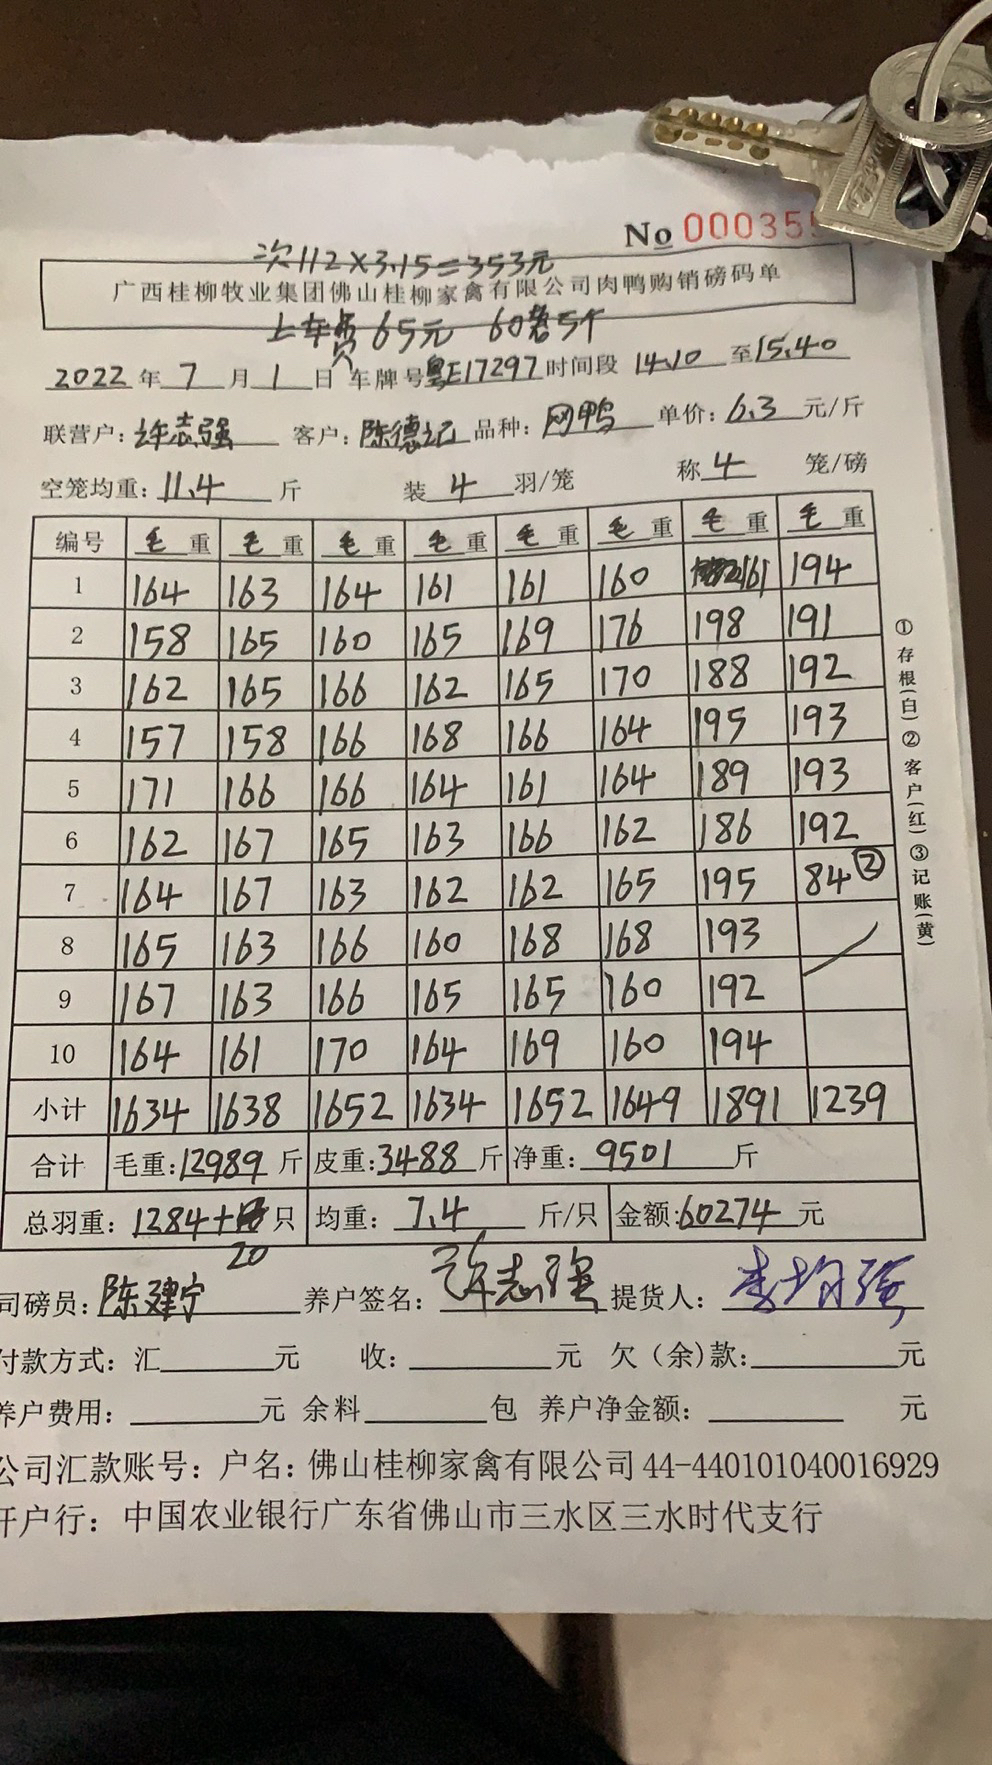 No 00035
次112×3.15=353元
广西桂柳牧业集团佛山桂柳家禽有限公司肉鸭购销磅码单
上车费65元 60 5个
2022年7月1日 车牌号粤E17297 时间段 14.10 至15.40
联营户:许志强 客户:陈德记 品种:网鸭 单价:6.3元/斤
空笼均重:11.4斤 装4羽/笼 称4笼/磅
编号 毛重 毛重 毛重 毛重 毛重 毛重 毛重 毛重
1 164 163 164 161 161 160 161 194
2 158 165 160 165 169 176 198 191
3 162 165 166 162 165 170 188 192
4 157 158 166 168 166 164 195 193
5 171 166 166 164 161 164 189 193
6 162 167 165 163 166 162 186 192
7 164 167 163 162 162 165 195 84②
8 165 163 166 160 168 168 193
9 167 163 166 165 165 160 192
10 164 161 170 164 169 160 194
小计 1634 1638 1652 1634 1652 1649 1891 1239
合计 毛重:12989斤 皮重:3488斤 净重:9501斤
总羽重:1284+ 只 均重:7.4斤/只 金额:60274元
20
司磅员:陈建宁 养户签名:许志强 提货人:李均强
付款方式:汇 元 收: 元 欠(余)款: 元
养户费用: 元 余料 包 养户净金额: 元
公司汇款账号:户名:佛山桂柳家禽有限公司44-440101040016929
开户行:中国农业银行广东省佛山市三水区三水时代支行
①存根(白)②客户(红)③记账(黄)